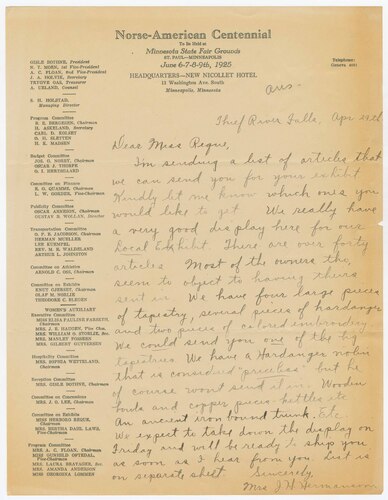 Norse-American Centennial
To Be Held at
Minnesota State Fair Grounds
ST. PAUL—MINNEAPOLIS
June 6-7-8-9th, 1925
HEADQUARTERS—NEW NICOLLET HOTEL
13 Washington Ave. South
Minneapolis, Minnesota
Telephone:
Geneva
GISLE BOTHNE, President
N. T. MOEN, 1st Vice-President
A. C. FLOAN, 2nd Vice-President
J. A. HOLVIK, Secretary
TRYGVE OAS, Treasurer
A. UELAND, Counsel
S. H. HOLSTAD,
Managing Director
Program Committee
Chairman
H. ASKELAND, Secretary
CARL D. KOLSET
O. H. SLETTEN
H. E. MADSEN
Budget Committee
JOS. G. NORBY, Chairman
OSCAR J. THORPE
G. I. HERTSGAARD
Committee on Finance
E. G. QUAMME, Chairman
L. W. Vice-Chairman
Publicity Committee
OSCAR ARNESON, Chairman
GUSTAV B. WOLLAN, Director
Transportation Committee
O. P. B. JACOBSON, Chairman
HERMAN MUELLER
LEE KUEMPEL
REV. M. E. WALDELAND
ARTHUR L. JOHNSTON
Committee on Athletics
ARNOLD C. OSS, Chairman
Committee on Exhibits
KNUT GJERSET, Chairman
OLAF M. NORLIE
THEODORE C. BLEGEN
WOMEN'S AUXILIARY
Executive Committee
MISS ELISA FARSETH, Chairman
MRS. WILLIAM O. STORLIE, Sec.
MRS. MANLEY FOSSEEN
MRS. GILBERT GUTTERSEN
Hospitality Committee
MRS. SOPHIA WETTELAND,
Chairman
Reception Committee
MRS. GISLE BOTHNE, Chairman
Committee on Concessions
MRS. J. O. LEE, Chairman
Committee on Exhibits
MISS HERBORG REQUE,
Chairman
MRS. BERTHA DAHL LAWS,
Vice-Chairman
Program Committee
MRS. A. C. FLOAN, Chairman
MISS GUNHILD OFTEDAL,
Vice-Chairman
MRS. LAURA BRATAGER, Sec.
MRS. AMANDA ANDERSON
MISS GEORGINA LOMMEN
ans.
Thief River Falls, Apr
Dear Miss Reque,
I'm sending a list of articles that
we can send you for your exhibit
Kindly let me know which ones you
would like to get. We really have
a very good display here for our
Local Exhibit. There are over forty
articles Most of the owners tho,
seem to object to having theirs
sent We have four large pieces
of tapestry, several pieces of hardanger
and two pieces of colored embroidery
We could send you one of the big
tapestries We have a Hardanger violin
that is considered "priceless" but he
of course wont send it in. Wooden
bowls and copper pieces - kettles etc
An ancient iron bound trunk. Etc.
We expect to take down the display on
Friday and will be ready to ship you
as soon as I hear from you List is
on separate sheet Sincerely,
Mrs J H Hermanson